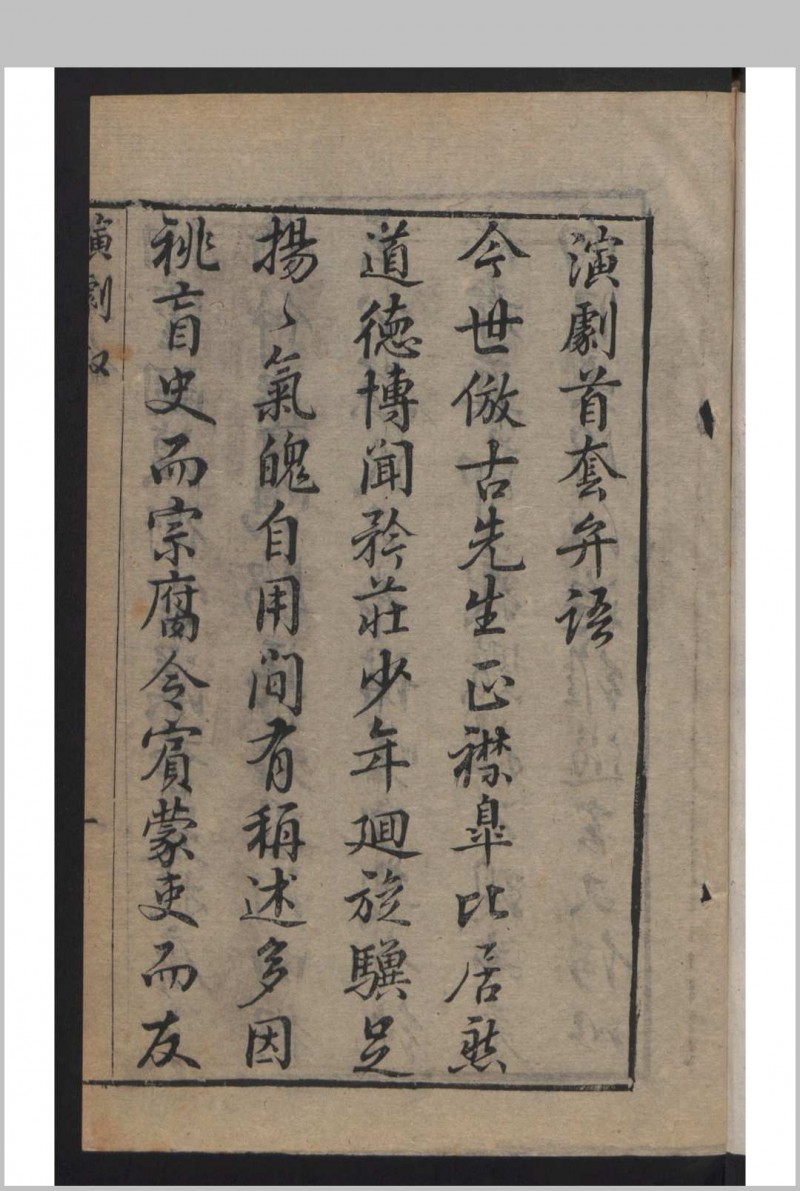 演劇首套弁語
今世倣古先生正襟臯比居然
道德博聞矜莊少年廻旋驥足
揚〻氣魄自用間有稱述多因
祧盲史而宗腐令賓蒙吏而友
演劇叙